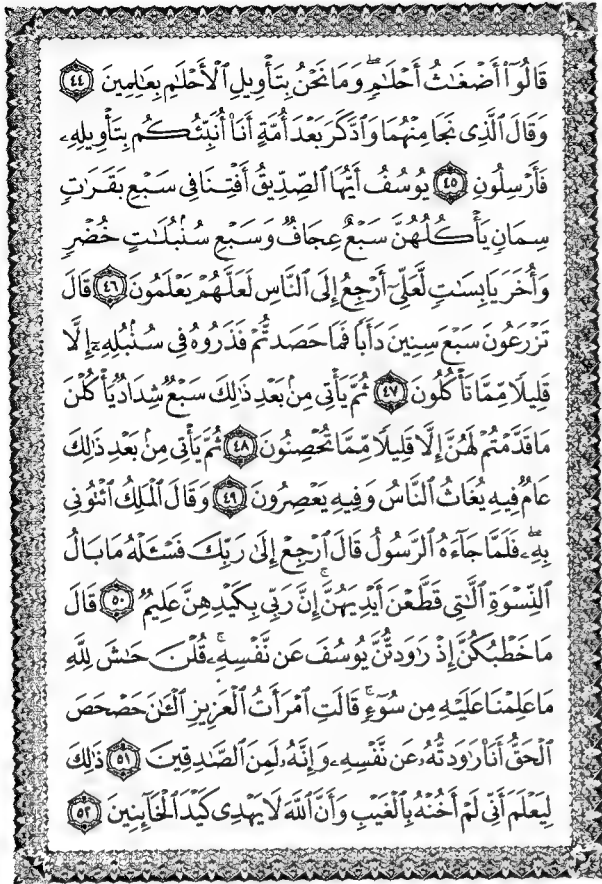 قَالُوٓا۟ أَضْغَٰثُ أَحْلَٰمٍۖ وَمَا نَحْنُ بِتَأْوِيلِ ٱلْأَحْلَٰمِ بِعَٰلِمِينَ ٤٤
وَقَالَ ٱلَّذِى نَجَا مِنْهُمَا وَٱدَّكَرَ بَعْدَ أُمَّةٍ أَنَا۠ أُنَبِّئُكُم بِتَأْوِيلِهِۦ
فَأَرْسِلُونِ ٤٥ يُوسُفُ أَيُّهَا ٱلصِّدِّيقُ أَفْتِنَا فِى سَبْعِ بَقَرَٰتٍ
سِمَانٍ يَأْكُلُهُنَّ سَبْعٌ عِجَافٌ وَسَبْعِ سُنۢبُلَٰتٍ خُضْرٍ
وَأُخَرَ يَابِسَٰتٍ لَّعَلِّىٓ أَرْجِعُ إِلَى ٱلنَّاسِ لَعَلَّهُمْ يَعْلَمُونَ ٤٦ قَالَ
تَزْرَعُونَ سَبْعَ سِنِينَ دَأَبًا فَمَا حَصَدتُّمْ فَذَرُوهُ فِى سُنۢبُلِهِۦٓ إِلَّا
قَلِيلًا مِّمَّا تَأْكُلُونَ ٤٧ ثُمَّ يَأْتِى مِنۢ بَعْدِ ذَٰلِكَ سَبْعٌ شِدَادٌ يَأْكُلْنَ
مَا قَدَّمْتُمْ لَهُنَّ إِلَّا قَلِيلًا مِّمَّا تُحْصِنُونَ ٤٨ ثُمَّ يَأْتِى مِنۢ بَعْدِ ذَٰلِكَ
عَامٌ فِيهِ يُغَاثُ ٱلنَّاسُ وَفِيهِ يَعْصِرُونَ ٤٩ وَقَالَ ٱلْمَلِكُ ٱئْتُونِى
بِهِۦۖ فَلَمَّا جَآءَهُ ٱلرَّسُولُ قَالَ ٱرْجِعْ إِلَىٰ رَبِّكَ فَسْـَٔلْهُ مَا بَالُ
ٱلنِّسْوَةِ ٱلَّٰتِى قَطَّعْنَ أَيْدِيَهُنَّۚ إِنَّ رَبِّى بِكَيْدِهِنَّ عَلِيمٌ ٥٠ قَالَ
مَا خَطْبُكُنَّ إِذْ رَٰوَدتُّنَّ يُوسُفَ عَن نَّفْسِهِۦۚ قُلْنَ حَٰشَ لِلَّهِ
مَا عَلِمْنَا عَلَيْهِ مِن سُوٓءٍۚ قَالَتِ ٱمْرَأَتُ ٱلْعَزِيزِ ٱلْـَٰٔنَ حَصْحَصَ
ٱلْحَقُّ أَنَا۠ رَٰوَدتُّهُۥ عَن نَّفْسِهِۦ وَإِنَّهُۥ لَمِنَ ٱلصَّٰدِقِينَ ٥١ ذَٰلِكَ
لِيَعْلَمَ أَنِّى لَمْ أَخُنْهُ بِٱلْغَيْبِ وَأَنَّ ٱللَّهَ لَا يَهْدِى كَيْدَ ٱلْخَآئِنِينَ ٥٢